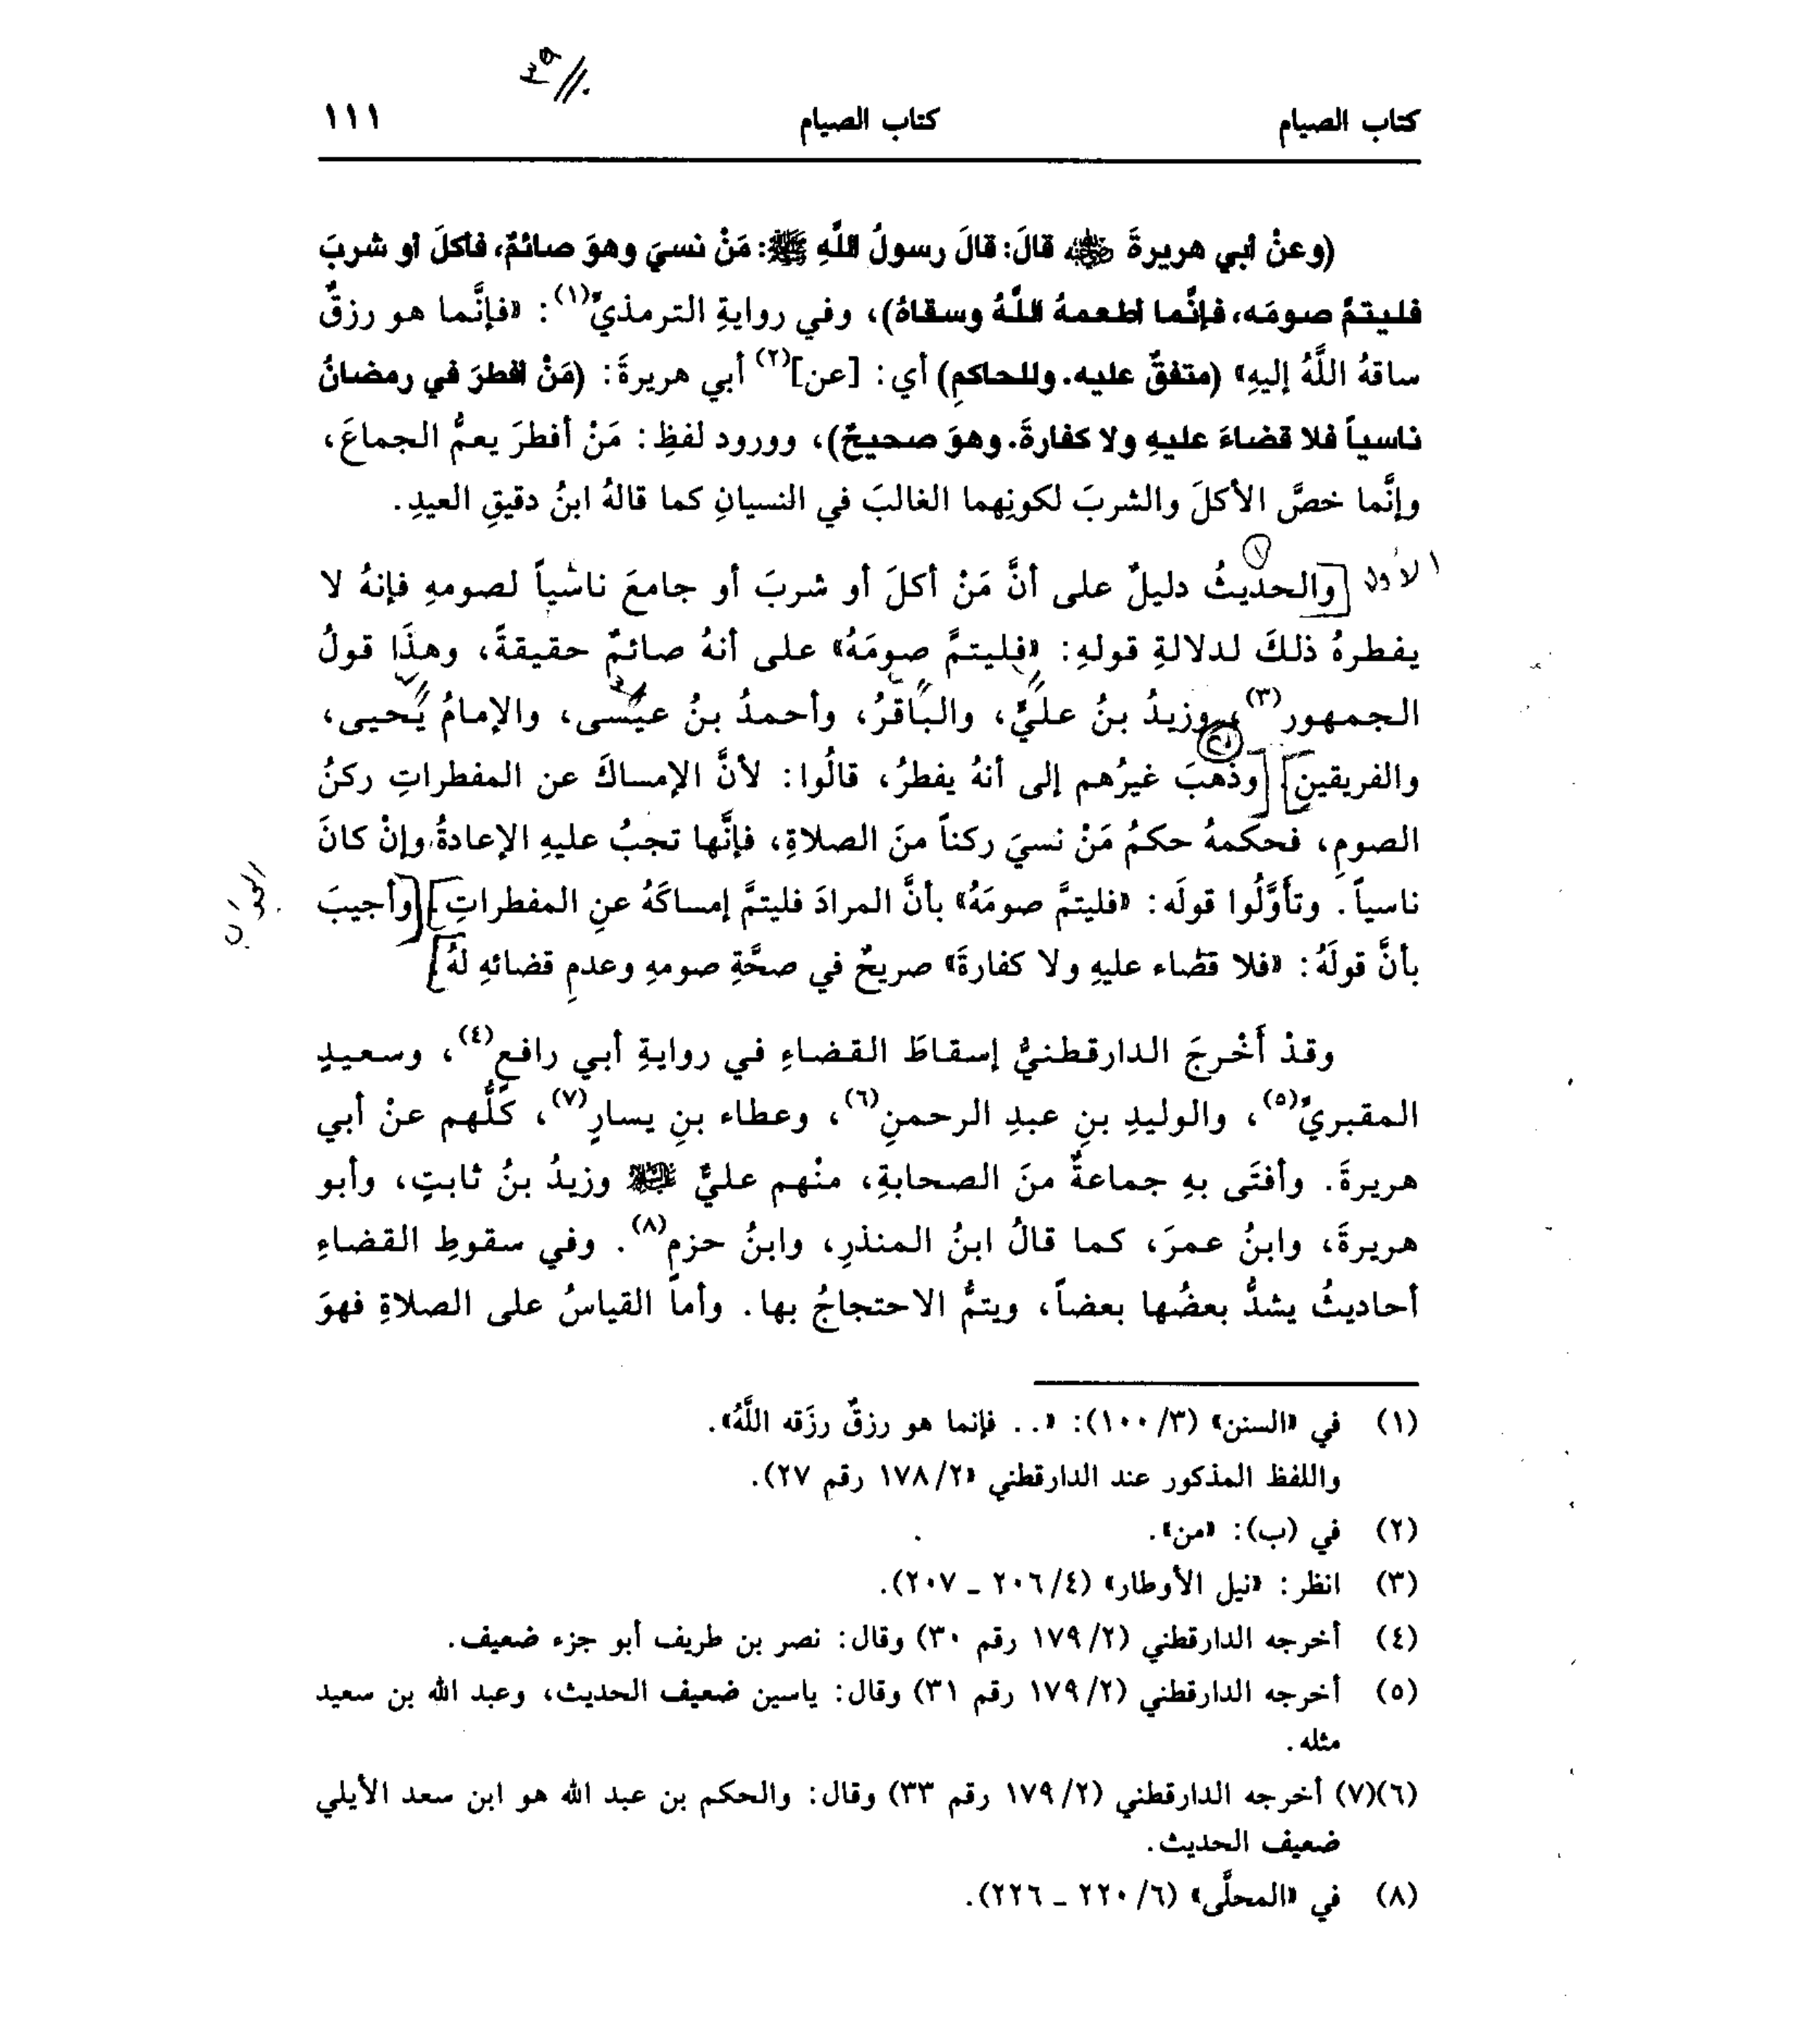 كتاب الصيام كتاب الصيام ١١١
(وعنْ أبي هريرةَ رضي الله عنه قالَ: قالَ رسولُ اللَّهِ ﷺ: مَنْ نسيَ وهوَ صائمٌ، فأكلَ أو شربَ
فليتمَّ صومَه، فإنَّما أطعمهُ اللَّهُ وسقاهُ)، وفي روايةِ الترمذيِّ(١): «فإنَّما هو رزقٌ
ساقهُ اللَّهُ إليهِ» (متفقٌ عليه. وللحاكمِ) أي: [عن](٢) أبي هريرةَ: (مَنْ أفطرَ في رمضانَ
ناسياً فلا قضاءَ عليهِ ولا كفارةَ. وهوَ صحيحٌ)، وورود لفظِ: مَنْ أفطرَ يعمُّ الجماعَ،
وإنَّما خصَّ الأكلَ والشربَ لكونِهما الغالبَ في النسيانِ كما قالهُ ابنُ دقيقِ العيدِ.
الأول
١
والحديثُ دليلٌ على أنَّ مَنْ أكلَ أو شربَ أو جامعَ ناسياً لصومهِ فإنهُ لا
يفطرهُ ذلكَ لدلالةِ قولهِ: «فليتمَّ صومَهُ» على أنهُ صائمٌ حقيقةً، وهذَا قولُ
الجمهور(٣)، وزيدُ بنُ عليٍّ، والباقرُ، وأحمدُ بنُ عيسى، والإمامُ يَحيى،
والفريقينِ] [وذهبَ غيرُهم إلى أنهُ يفطرُ، قالُوا: لأنَّ الإمساكَ عن المفطراتِ ركنُ
الصومِ، فحكمهُ حكمُ مَنْ نسيَ ركناً منَ الصلاةِ، فإنَّها تجبُ عليهِ الإعادةُ وإنْ كانَ
ناسياً. وتأوَّلُوا قولَه: «فليتمَّ صومَهُ» بأنَّ المرادَ فليتمَّ إمساكَهُ عنِ المفطراتِ] [وأجيبَ
الجواب
بأنَّ قولَهُ: «فلا قضاء عليهِ ولا كفارةَ» صريحٌ في صحَّةِ صومهِ وعدمِ قضائهِ لهُ]
وقدْ أَخْرجَ الدارقطنيُّ إسقاطَ القضاءِ في روايةِ أبي رافعٍ(٤)، وسعيدٍ
المقبريِّ(٥)، والوليدِ بنِ عبدِ الرحمنِ(٦)، وعطاء بنِ يسارٍ(٧)، كلُّهم عنْ أبي
هريرةَ. وأفتَى بهِ جماعةٌ منَ الصحابةِ، منْهم عليٌّ عليه السلام وزيدُ بنُ ثابتٍ، وأبو
هريرةَ، وابنُ عمرَ، كما قالُ ابنُ المنذرِ، وابنُ حزمٍ(٨). وفي سقوطِ القضاءِ
أحاديثُ يشدُّ بعضُها بعضاً، ويتمُّ الاحتجاجُ بها. وأما القياسُ على الصلاةِ فهوَ
(١) في «السنن» (٣/١٠٠): «.. فإنما هو رزقٌ رزَقه اللَّهُ».
واللفظ المذكور عند الدارقطني «٢/١٧٨ رقم ٢٧).
(٢) في (ب): «من».
(٣) انظر: «نيل الأوطار» (٤/٢٠٦ ـ ٢٠٧).
(٤) أخرجه الدارقطني (٢/١٧٩ رقم ٣٠) وقال: نصر بن طريف أبو جزء ضعيف.
(٥) أخرجه الدارقطني (٢/١٧٩ رقم ٣١) وقال: ياسين ضعيف الحديث، وعبد الله بن سعيد
مثله.
(٦)(٧) أخرجه الدارقطني (٢/١٧٩ رقم ٣٣) وقال: والحكم بن عبد الله هو ابن سعد الأيلي
ضعيف الحديث.
(٨) في «المحلَّى» (٦/٢٢٠ ـ ٢٢٦).